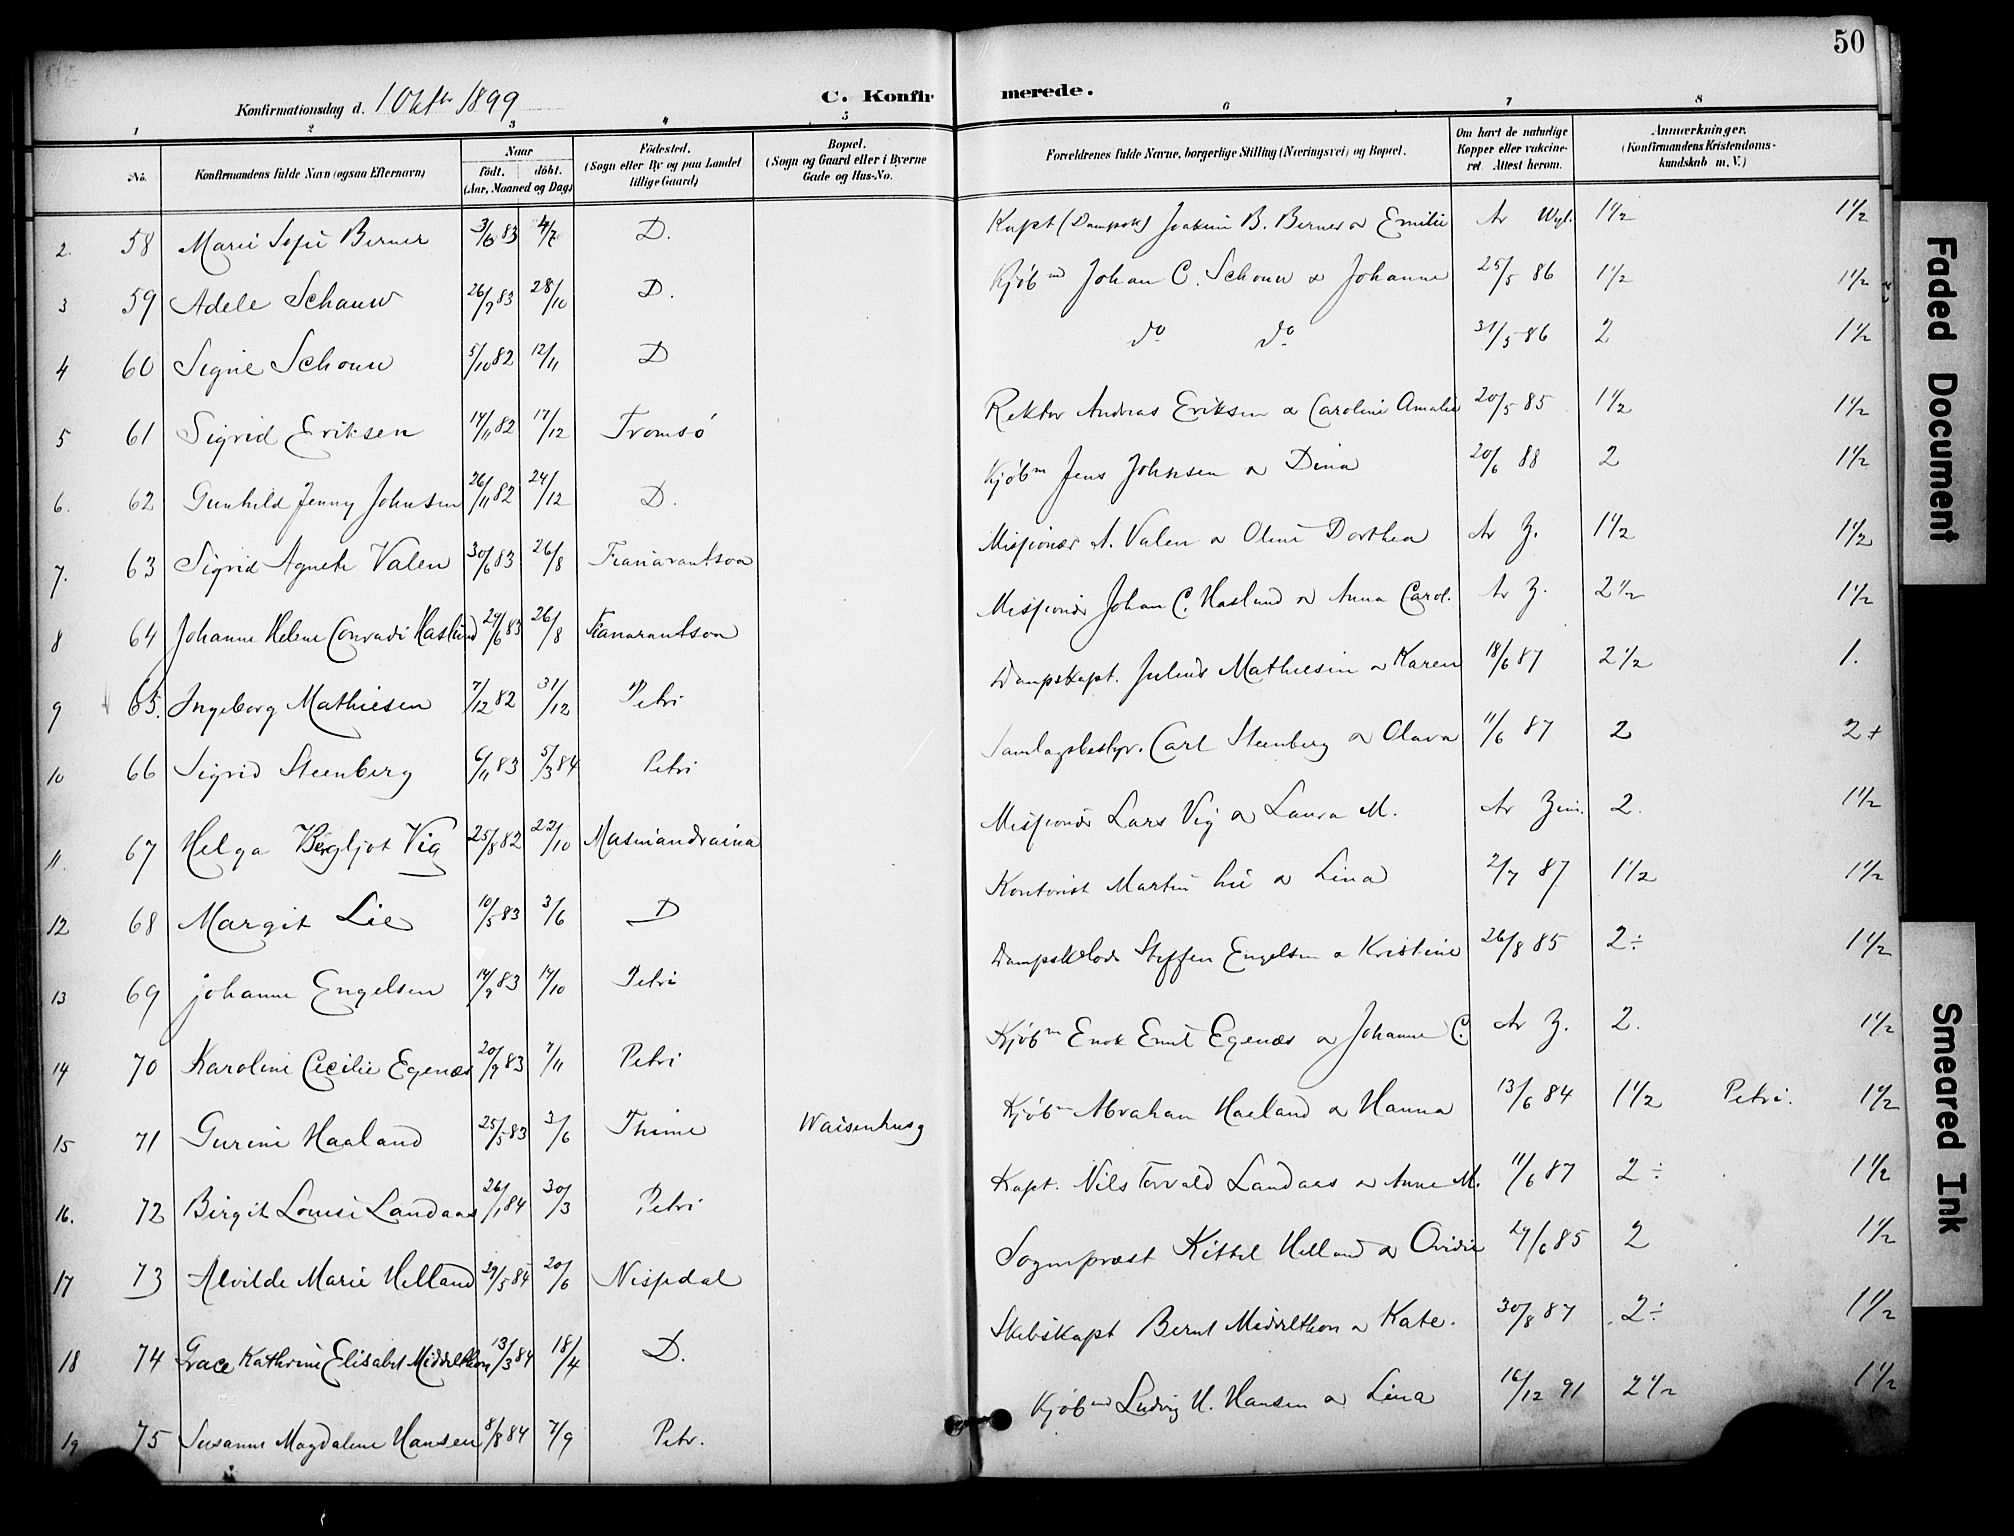 50
Konfirmationsdag d. 1 Oktbr 1899 C. Konfirmerede.
1 2 3 4 5 6 7 8
No. Konfirmandens fulde Navn (ogsaa Efternavn) Naar født. døbt. (Aar, Maaned og Dag) Fødested. (Sogn eller By og paa Landet tillige Gaard) Bopæl. (Sogn og Gaard eller i Byerne Gade og Hus-No. Forældrenes fulde Navne, borgerlige Stilling (Næringsvei) og Bopæl. Om havt de naturlige Kopper eller vaccineret. Attest herom. Anmærkninger. (Konfirmandens Kristendomskundskab m. V.)
2. 58 Marie Sofie Berner 3/6 83 4/7 D. Kapt (Dampsk) Joakim B. Berner & Emilie Ar 1 1/2 1 1/2
3 59 Adele Schouw 26/9 83 28/10 D. Kjøbm Johan C. Schouw & Johanne 25/5 86 1 1/2 1 1/2
4 60 Signe Schouw 5/10 82 12/11 D do do 31/5 86 2 1 1/2
5 61 Sigrid Eriksen 14/11 82 17/12 Tromsø Rektor Andreas Eriksen & Caroline Amalie 20/5 85 1 1/2 1 1/2
6. 62 Gunhild Jenny Johnsen 26/11 82 24/12 D. Kjøbm Jens Johnsen & Dina 20/6 88 2 1 1/2
7. 63 Sigrid Agnete Valen 30/6 83 26/8 Fianarantsoa Missionær A. Valen & Oline Dorthea Ar Z. 1 1/2 1 1/2
8 64 Johanne Helene Conradi Haslund 24/6 83 26/8 Fianarantsoa Missionær Johan C. Haslund & Anna Carol. Ar Z. 2 1/2 1 1/2
9 65. Ingeborg Mathiesen 7/12 82 31/12 Petri Dampskapt. Julius Mathiesen & Karen 18/6 87 2 1/2 1.
10 66 Sigrid Steenberg 6/11 83 5/3 84 Petri Samlagsbestyr. Carl Steenberg & Olava 11/6 87 2 2+
11. 67 Helga Bergljot Vig 25/8 82 22/10 Masinandraina Missionær Lars Vig & Laura M. Ar Zim. 2. 1 1/2
12 68 Margit Lie 10/5 83 3/6 D Kontorist Martin Lie & Lina 2/7 87 1 1/2 1 1/2
13 69 Johanne Engelsen 14/9 83 14/10 Petri Dampsklods Steffen Engelsen & Kristine 26/8 85 2÷ 1 1/2
14 70 Karoline Cecilie Egenæs 20/9 83 7/11 Petri Kjøbm Enok Emil Egenæs & Johanne C. Ar Z. 2. 1 1/2
15 71 Gurine Haaland 25/5 83 3/6 Thime Waisenhusg Kjøbm Abraham Haaland & Hanna 13/6 84 1 1/2 Petri. 1 1/2
16. 72 Birgit Louise Landaas 26/1 84 30/3 Petri Kapt. Nils Torvald Landaas & Anne M. 11/6 87 2÷ 1 1/2
17 73 Alvilde Marie Helland 29/5 84 20/6 Nissedal Sognepræst Kittil Helland & Ovidie 27/6 85 2 1 1/2
18 74 Grace Kathrine Elisabet Middelthon 13/3 84 18/4 D. Skibskapt Bernt Middelthon & Kate. 30/8 87 2÷ 1 1/2
19 75 Susanne Magdalene Hansen 8/8 84 7/9 Petr. Kjøbm Ludvig H. Hansen & Lina 16/12 91 2 1/2 1 1/2
Faded Document
Smeared Ink